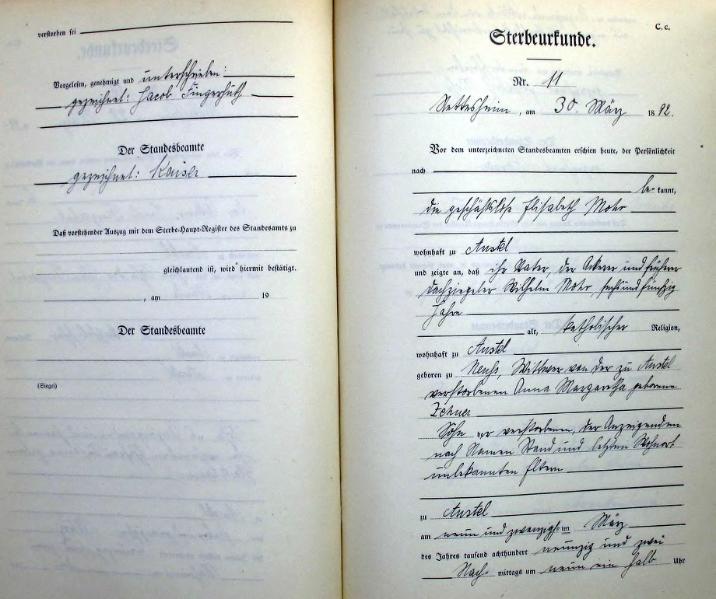 verstorben sei
Vorgelesen, genehmigt und unterschrieben:
gezeichnet: Jacob Fingerhuth
Der Standesbeamte
gezeichnet: Kaiser
Daß vorstehender Auszug mit dem Sterbe-Haupt-Register des Standesamts zu
gleichlautend ist, wird hiermit bestätigt.
, am 19
Der Standesbeamte
(Siegel)
C. c.
Sterbeurkunde.
Nr. 11
Nettesheim, am 30 März 1892.
Vor dem unterzeichneten Standesbeamten erschien heute, der Persönlichkeit
nach
be kannt,
die geschäftslose Elisabeth Mohr
wohnhaft zu Anstel
und zeigte an, daß ihr Vater, der Ackerer und früher
Dachziegeler Wilhelm Mohr, sechsundfünfzig
Jahre
alt, katholischer Religion,
wohnhaft zu Anstel
geboren zu Neuß, Wittwer von der zu Anstel
verstorbenen Anna Margaretha geborene
Sohn der verstorbenen, der Anzeigenden
nach Namen Stand und letzten Wohnort
unbekannten Eltern
zu Anstel
am neun und zwanzigsten März
des Jahres tausend achthundert neunzig und zwei
Nach mittags um neun ein halb Uhr